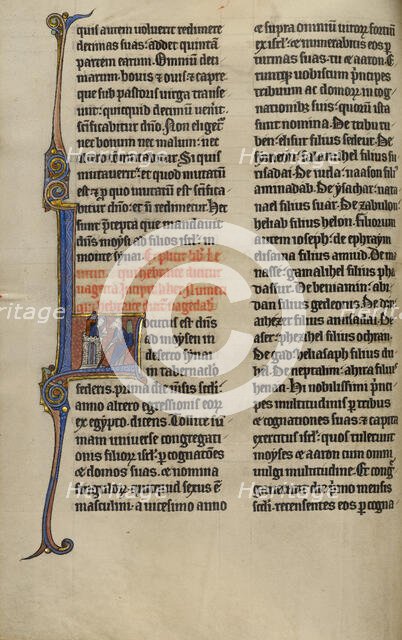 quis autem voluerit redimere
decimas suas: addet quintā
partem earum. Omniū deci
marum bovis & ovis & capre
que sub pastoris virga transe
unt: quicquid decimū venit:
scīficabitur dño. Non eliget
nec bonum nec malum: nec
Si quis
mutaverit: et quod mutatū
est & pro quo mutatū est scīfica
bitur dño: et nō redimetur. Hec
sunt precepta que mandavit
dñs moysi ad filios isrl: in
monte synai.
Locutus est dñs
ad moysen in
deserto synai
in tabernaclo
federis. prima die mēsis scdi.
anno altero egressionis eor
ex egypto. dicens. Tollite sū
mam universe congregati
onis filior isrl. p cognatōes
et domos suas. et nomina
singulor. quicquid sexus ē
masculini. a vicesimo anno
et supra omniū viror fortiū
ex isrl. et numerabitis eos p
turmas suas: tu et aaron. E
runtque vobiscum principes
tribuum ac domor in cog
nationibz suis. quorū ista
sunt nomina. De ru
ben: elisur filius sedeur. De
symeon: salamihel filius su
risadai. De iuda: naason filius
aminadab. De ysachar: nata
nael filius suar. De zabulon
heliab filius helon. filiorum
autem ioseph: de ephraym
elisama filius amiud. De ma
nasse: gamalihel filius pha
dassur. De beniamin: abi
dan filius gedeonis. De dan:
De
aser: phegihel filius ochran.
De gad: heliasaph filius due
De neptalim: ahira filius
henan. Hi nobilissimi prīci
pes multitudinis p tribus
et cognationes suas: & capita
exercitus isrl. quos tulerunt
moyses et aaron cum omni
vulgi multitudine. Et cong
mensis
scdi. recensentes eos p cogna
Heritage
Images